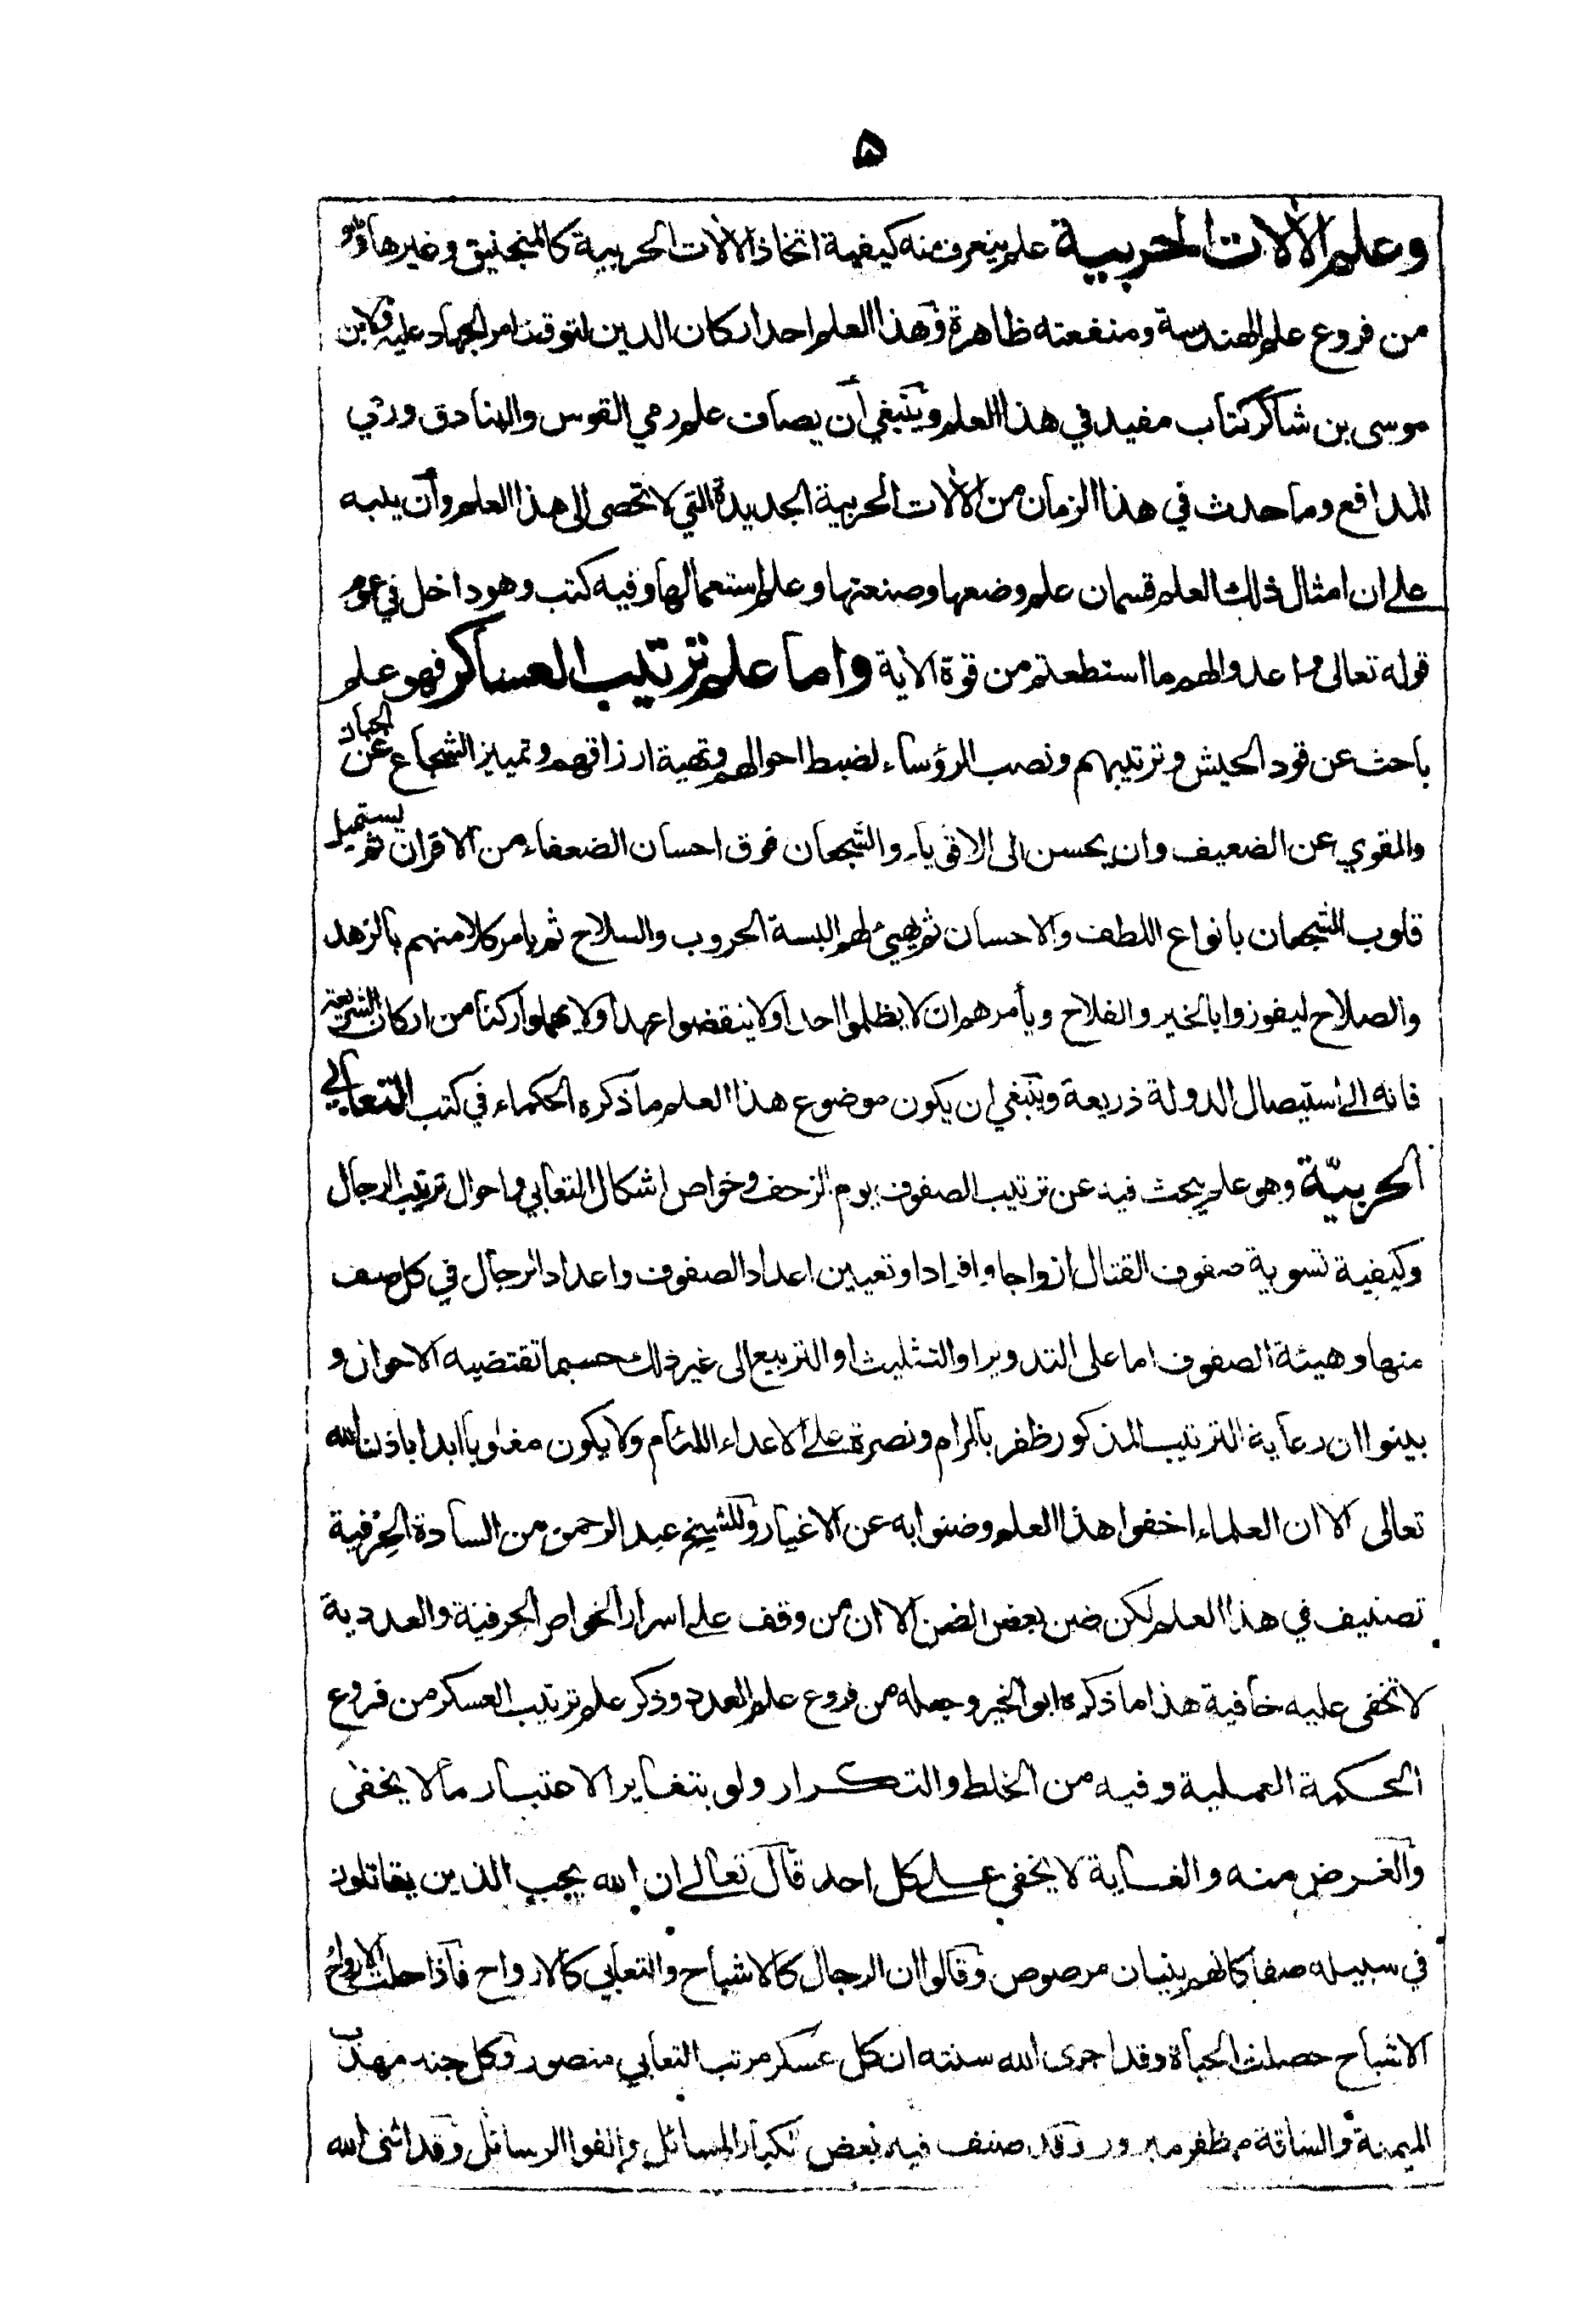 ٥
وعلم الآلات الحربية علم يتعرف منه كيفية اتخاذ الآلات الحربية كالمنجنيق وغيرها وهو
من فروع علم الهندسة ومنفعته ظاهرة وهذا العلم احد اركان الدين لتوقف امر الجهاد عليه ولابن
موسى بن شاكر كتاب مفيد في هذا العلم وينبغي أن يضاف علم رمي القوس والبنادق ورمي
المدافع وما حدث في هذا الزمان من الآلات الحربية الجديدة التي لا تحصى الى هذا العلم وأن ينبه
على ان امثال ذلك العلم قسمان علم وضعها وصنعتها وعلم استعمالها وفيه كتب وهو داخل في عموم
قوله تعالى واعدوا لهم ما استطعتم من قوة الآية واما علم ترتيب العساكر فهو علم
باحث عن قود الجيش وترتيبهم ونصب الرؤساء لضبط احوالهم وتهية ارزاقهم وتمييز الشجاع عن الجبان
والقوي عن الضعيف وان يحسن الى الاقوياء والشجعان فوق احسان الضعفاء من الاقران ثم يستميل
قلوب الشجعان بانواع اللطف والاحسان ثم يهيئ لهم البسة الحروب والسلاح ثم يامر كلا منهم بالزهد
والصلاح ليفوزوا بالخير والفلاح ويأمرهم ان لا يظلموا احدا ولا ينقضوا عهدا ولا يهملوا ركنا من اركان الشريعة
فانه الى استيصال الدولة ذريعة وينبغي ان يكون موضوع هذا العلم ما ذكره الحكماء في كتب التعابي
الحربيّة وهو علم يبحث فيه عن ترتيب الصفوف يوم الزحف وخواص اشكال التعابي واحوال ترتيب الرجال
وكيفية تسوية صفوف القتال ازواجا وافرادا وتعيين اعداد الصفوف واعداد الرجال في كل صف
منها وهيئة الصفوف اما على التدوير او التثليث او التربيع الى غير ذلك حسبما تقتضيه الاحوال و
بينوا ان رعاية الترتيب المذكور ظفر بالمرام ونصرة على الاعداء اللئام ولا يكون مغلوبا ابدا باذن الله
تعالى الا ان العلماء اخفوا هذا العلم وضنوا به عن الاغيار وللشيخ عبد الرحمن من السادة الحرفية
تصنيف في هذا العلم لكن ضن بعض الضن الا ان من وقف على اسرار الخواص الحرفية والعددية
لا تخفى عليه خافية هذا ما ذكره ابو الخير وجعله من فروع علم العدد وذكر علم ترتيب العسكر من فروع
الحكمة العملية وفيه من الخلط والتكرار ولو بتغاير الاعتبار ما لا يخفى
والغرض منه والغاية لا يخفى على كل احد قال تعالى ان الله يحب الذين يقاتلون
في سبيله صفا كانهم بنيان مرصوص وقالوا ان الرجال كالاشباح والتعابي كالارواح فاذا حلت الارواح
الاشباح حصلت الحياة وقد اجرى الله سنته ان كل عسكر مرتب التعابي منصور وكل جند مهذب
الميمنة والساقة مظفر مبرور وقد صنف فيه بعض كبار المسائل والفوا الرسائل وقد اثنى الله